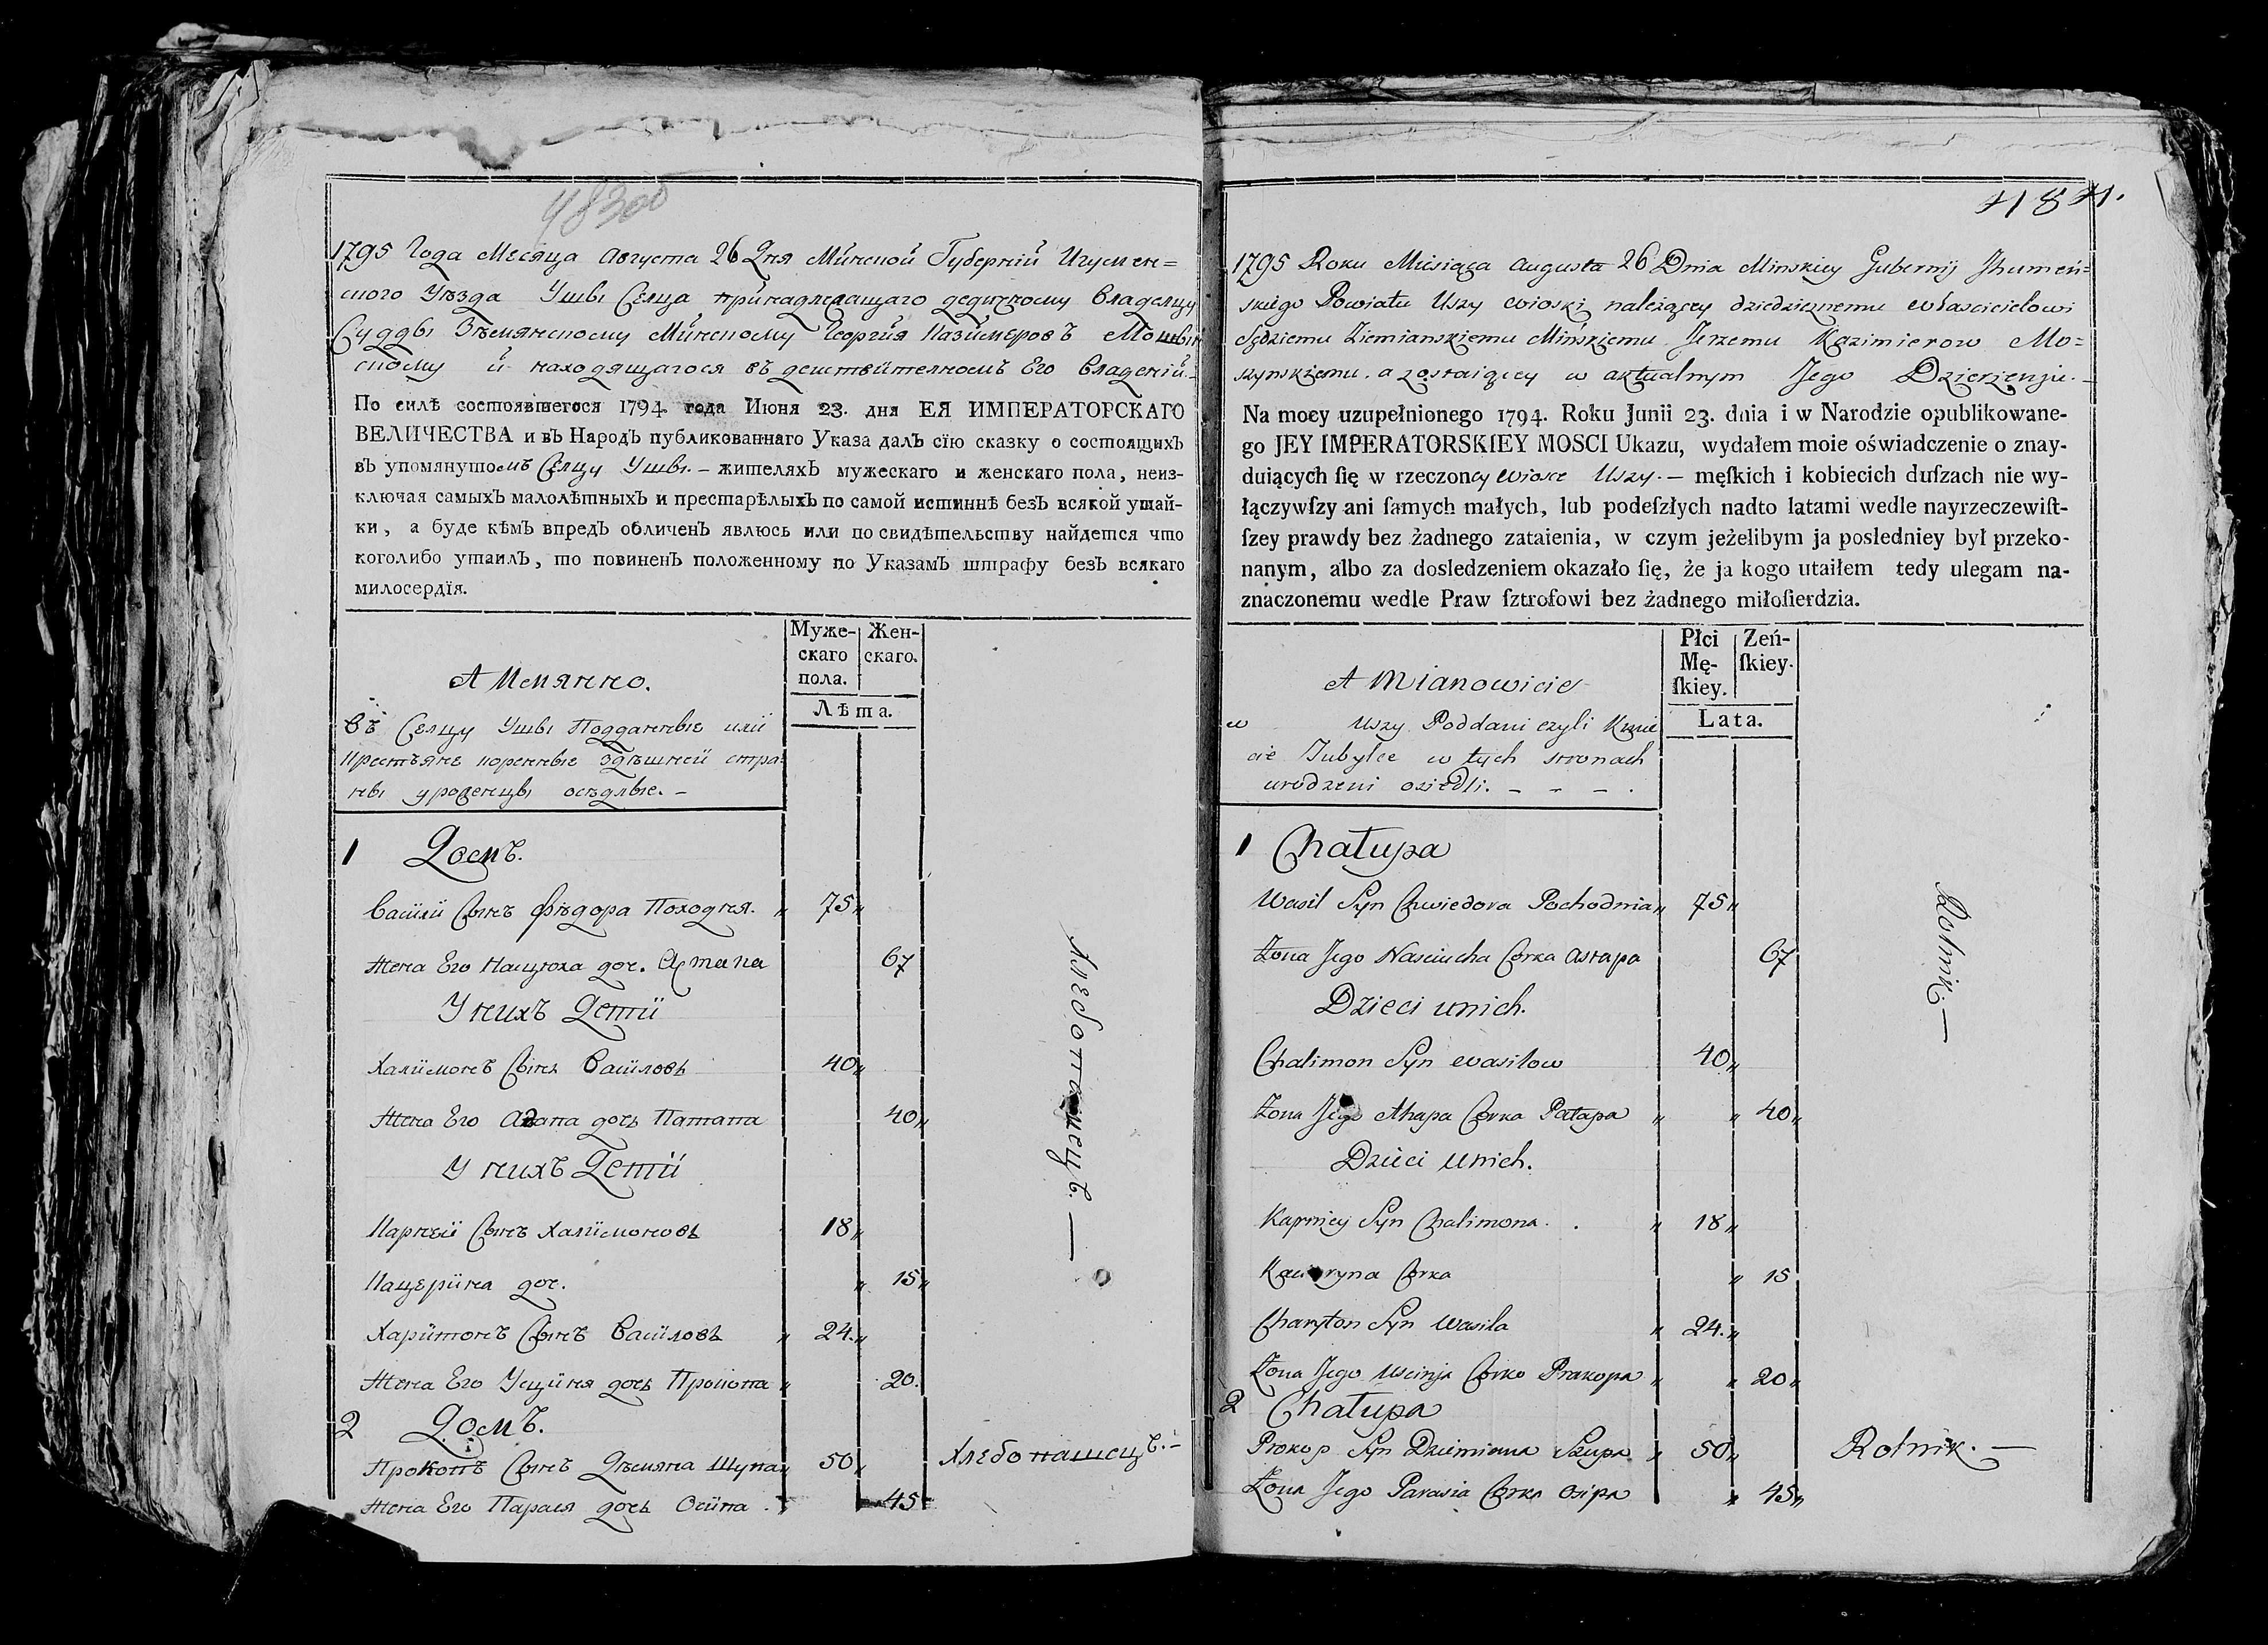 48300
1795 Года Месяца Августа 26 Дня Минской Губерній Игумен=
ского Уѣзда Ушы Селца принадлежащаго дедичному Владелцу
Суддѣ Зѣемянскому Минскому Георгия Казимеровъ Мошын
скому и находящагося въ действителномъ Его Владеній.
По силѣ состоявшегося 1794 года Июня 23. дня ЕЯ ИМПЕРАТОРСКАГО
ВЕЛИЧЕСТВА и въ Народъ публикованнаго Указа далъ сїю сказку о состоящихъ
въ упомянутомъ Селцу Ушы. – жителяхъ мужескаго и женскаго пола, неиз-
ключая самыхъ малолѣтныхъ и престарѣлыхъ по самой истиннѣ безъ всякой утай-
ки, а буде кѣмъ впредъ обличенъ явлюсь или по свидѣтельству найдется что
коголибо утаилъ, то повиненъ положенному по Указамъ штрафу безъ всякаго
милосердїя.
Муже-
скаго
пола.
Жен-
скаго.
Лѣта.
А Имянно.
Въ Селцу Ушы Подданные или
Крестъяне коренные Здѣшней стра-
ны уроженцы оседлые. –
1 Домъ.
Василй Сынъ Фѣдора Походня. „ 75„
Жена Его Насцюха доч. Астапа 67
У нихъ Дети
Халимонъ Сынъ Василовъ 40„
Жена Его Агапа дочь Патапа 40„
У нихъ Дети
Карней Сынъ Халимоновъ 18„
Кацерина доч. „ 15„
Харитонъ Сынъ Василовъ „ 24.„
Жена Его Усциня дочь Прокопа „ 20.
2 Домъ.
Прокопъ Сынъ Дѣмяна Шупа „ 50„ Хлебопашецъ. –
Жена Его Парася дочь Осипа 45
Хлебопашецъ. —
484.
1795 Roku Miesiąca Augusta 26 Dnia Minskiey Gubernij Jhumeń=
skiego Powiatu Uszy wioski należącey dziedzicznemu właścicielowi
Sędziemu Ziemianskiemu Mińskiemu Jerzemu Kazimierow Mo=
szynskiemu. a zostaiącey w aktualnym Jego Dzierżeniu. –
Na mocy uzupełnionego 1794. Roku Junii 23. dnia i w Narodzie opublikowane-
go JEY IMPERATORSKIEY MOSCI Ukazu, wydałem moie oświadczenie o znay-
duiących ſię w rzeczoney wiosce Uszy. – męſkich i kobiecich duſzach nie wy-
łączywſzy ani ſamych małych, lub podeſzłych nadto latami wedle nayrzeczewiſt-
ſzey prawdy bez żadnego zataienia, w czym jeżelibym ja posłedniey był przeko-
nanym, albo za dosledzeniem okazało ſię, że ja kogo utaiłem tedy ulegam na-
znaczonemu wedle Praw ſztrofowi bez żadnego miłoſierdzia.
Płci
Mę-
ſkiey.
Zeń-
ſkiey.
Lata.
A Mianowicie
w Uszy Poddani czyli Kmie
cie Jubylce w tych stronach
urodzeni osiedli. – – – .
1 Chałupa
Wasil Syn Chwiedora Pochodnia „ 75„
Żona Jego Nasciucha Corka Astapa 67
Dzieci unich.
Chalimon Syn Wasilow 40„
Żona Jego Ahapa Corka Patapa „ „ 40„
Dzieci unich.
Karniey Syn Chalimona. . „ 18„
Kaceryna Corka „ 15
Charyton Syn Wasila „ 24.„
Żona Jego Uscinja Corka Prakopa „ „ 20„
2 Chałupa
Prokop Syn Dziemiana Szupa „ 50„ Rolnik. —
Żona Jego Parasia Corka Osipa „ 45„
Rolnik. —